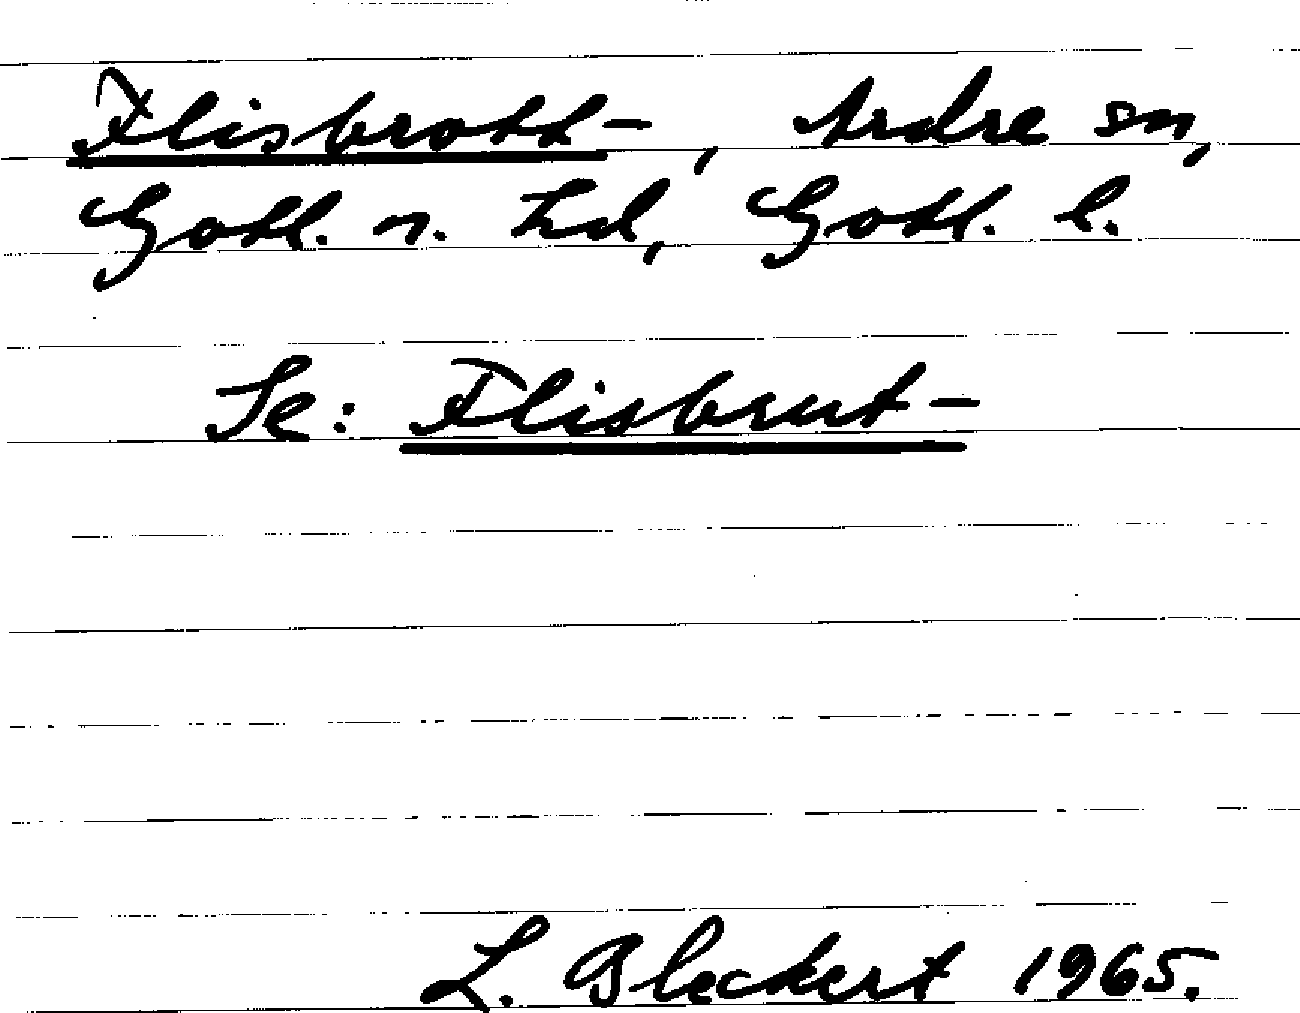 Flisbrott-, Ardre sn,
Gotl. n. hd, Gotl. l.
Se: Flisbrut-
L. Bleckert 1965.